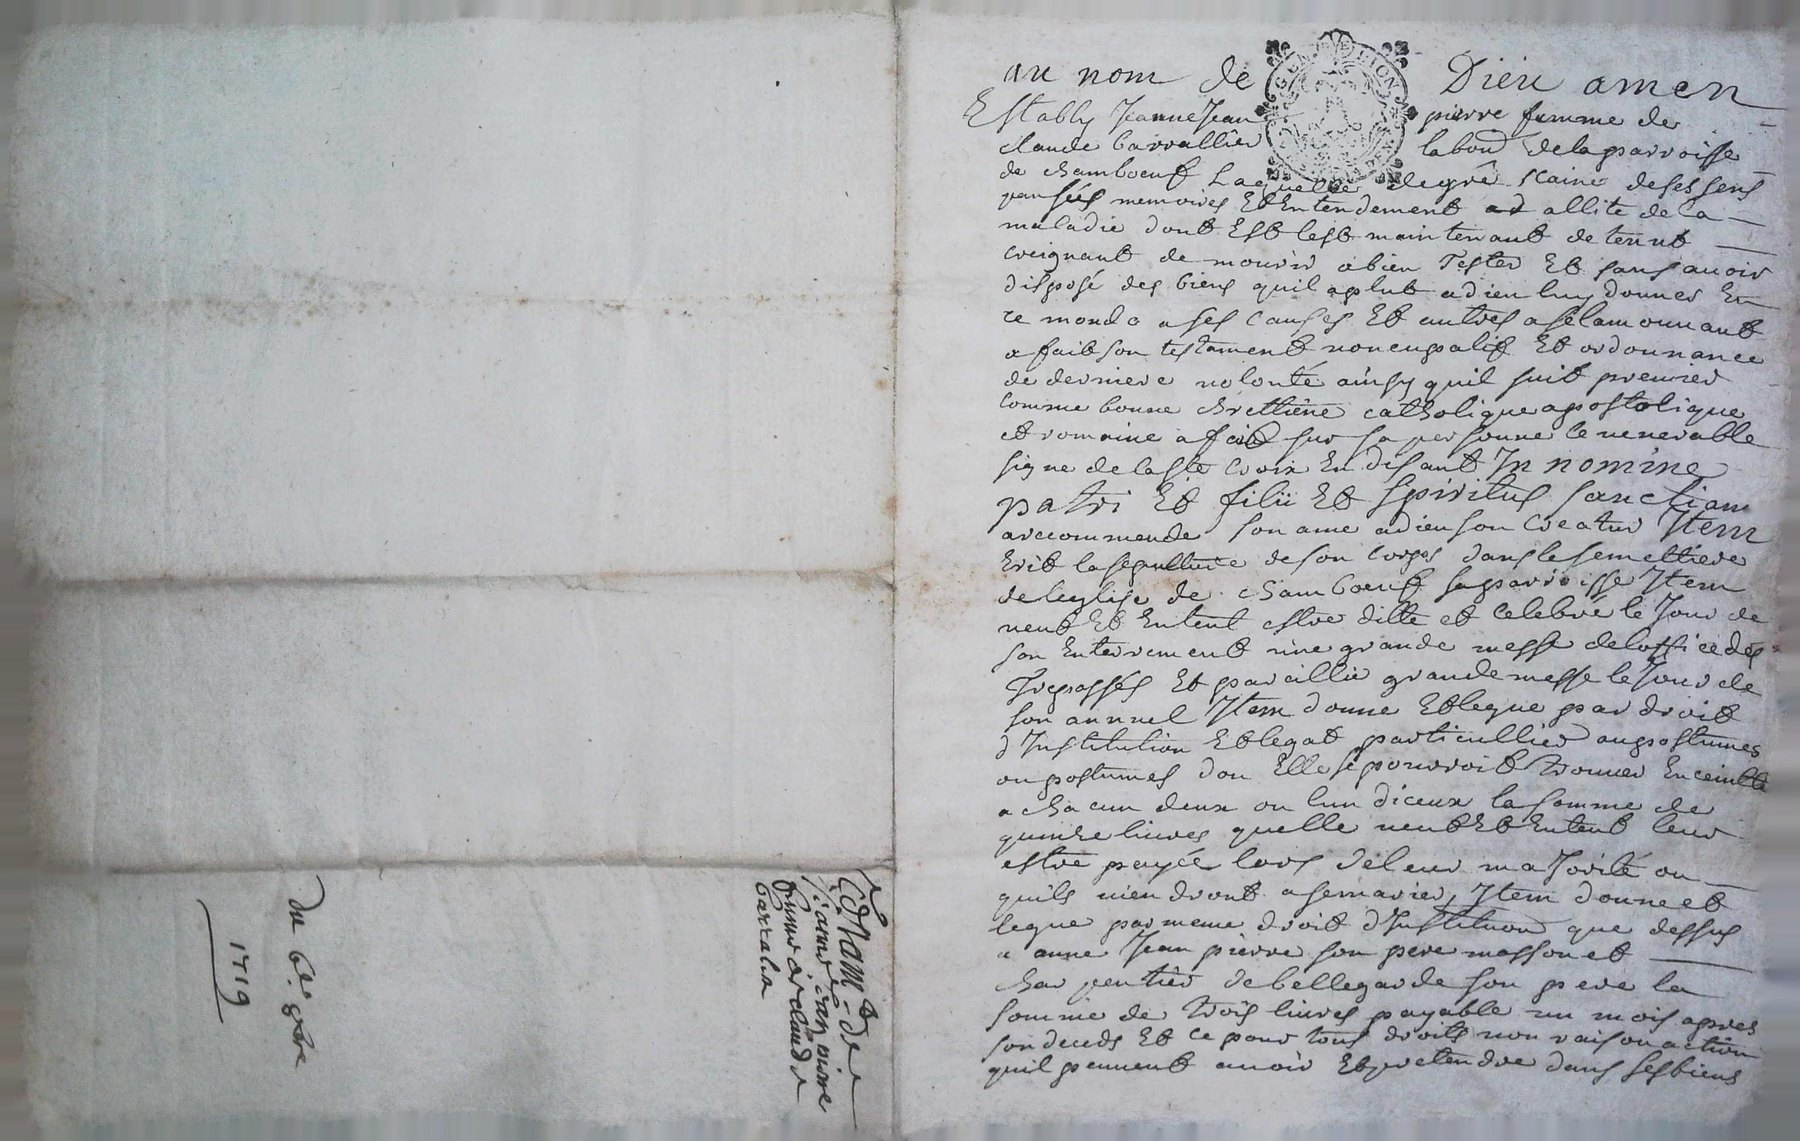 Testam.t de
jeanne jean pierre
femme a claude
barralier
du 6e. 9bre
1719
au nom de Dieu amen
Establÿ Jeanne Jean pierre femme de
claude barrallier labour de la parroisse
de chamboeuf Laquelle de gré scaine de ses sens
pansées memoires Et Entendement allite de la
maladie dont Est lest maintenant detenut
creignant de mourir abien Tester Et sans avoir
disposé des biens quil a plut a dieu luy donner En
ce monde a ses causes Et autres a se lamouuant
a fait son testament noncupatif Et ordonnance
de derniere volonté ainsy quil suit premier
comme bonne chrettiene catholique apostolique
et romaine a fait sur sa personne le venerable
signe de la ste croix En disant In nomine
patri Et filii Et spiritus sancti am
a reccommende son ame a dieu son Creatur Item
Erit la sepulture de son corps dans le semettiere
de leglise de chamboeuf sa parroisse Item
veut Et Entent estre ditte et celebré le Jour de
son Enterrement une grande messe de loffice des
Trepassés Et parallie grande messe le Jour de
son annuel Item donne Et legue par droit
d'Institution Et legat particullier au postumes
ou postumes dou Elle se pourroit trouver Enceinte
a chacun deux ou lun diceux la somme de
quinze livres quelle veut Et Entent leur
estre payéé lors de leur maJorité ou
quils viendront a se marier, Item donne et
legue par meme droit d'Institution que dessus
a anne Jean pierre son pere masson et
charpentier de bellegarde son pere la
somme de trois livres payable un mois apres
son deceds Et ce pour tous droits nom raison action
quil peuvent avoir Et pretendre dans ses biens